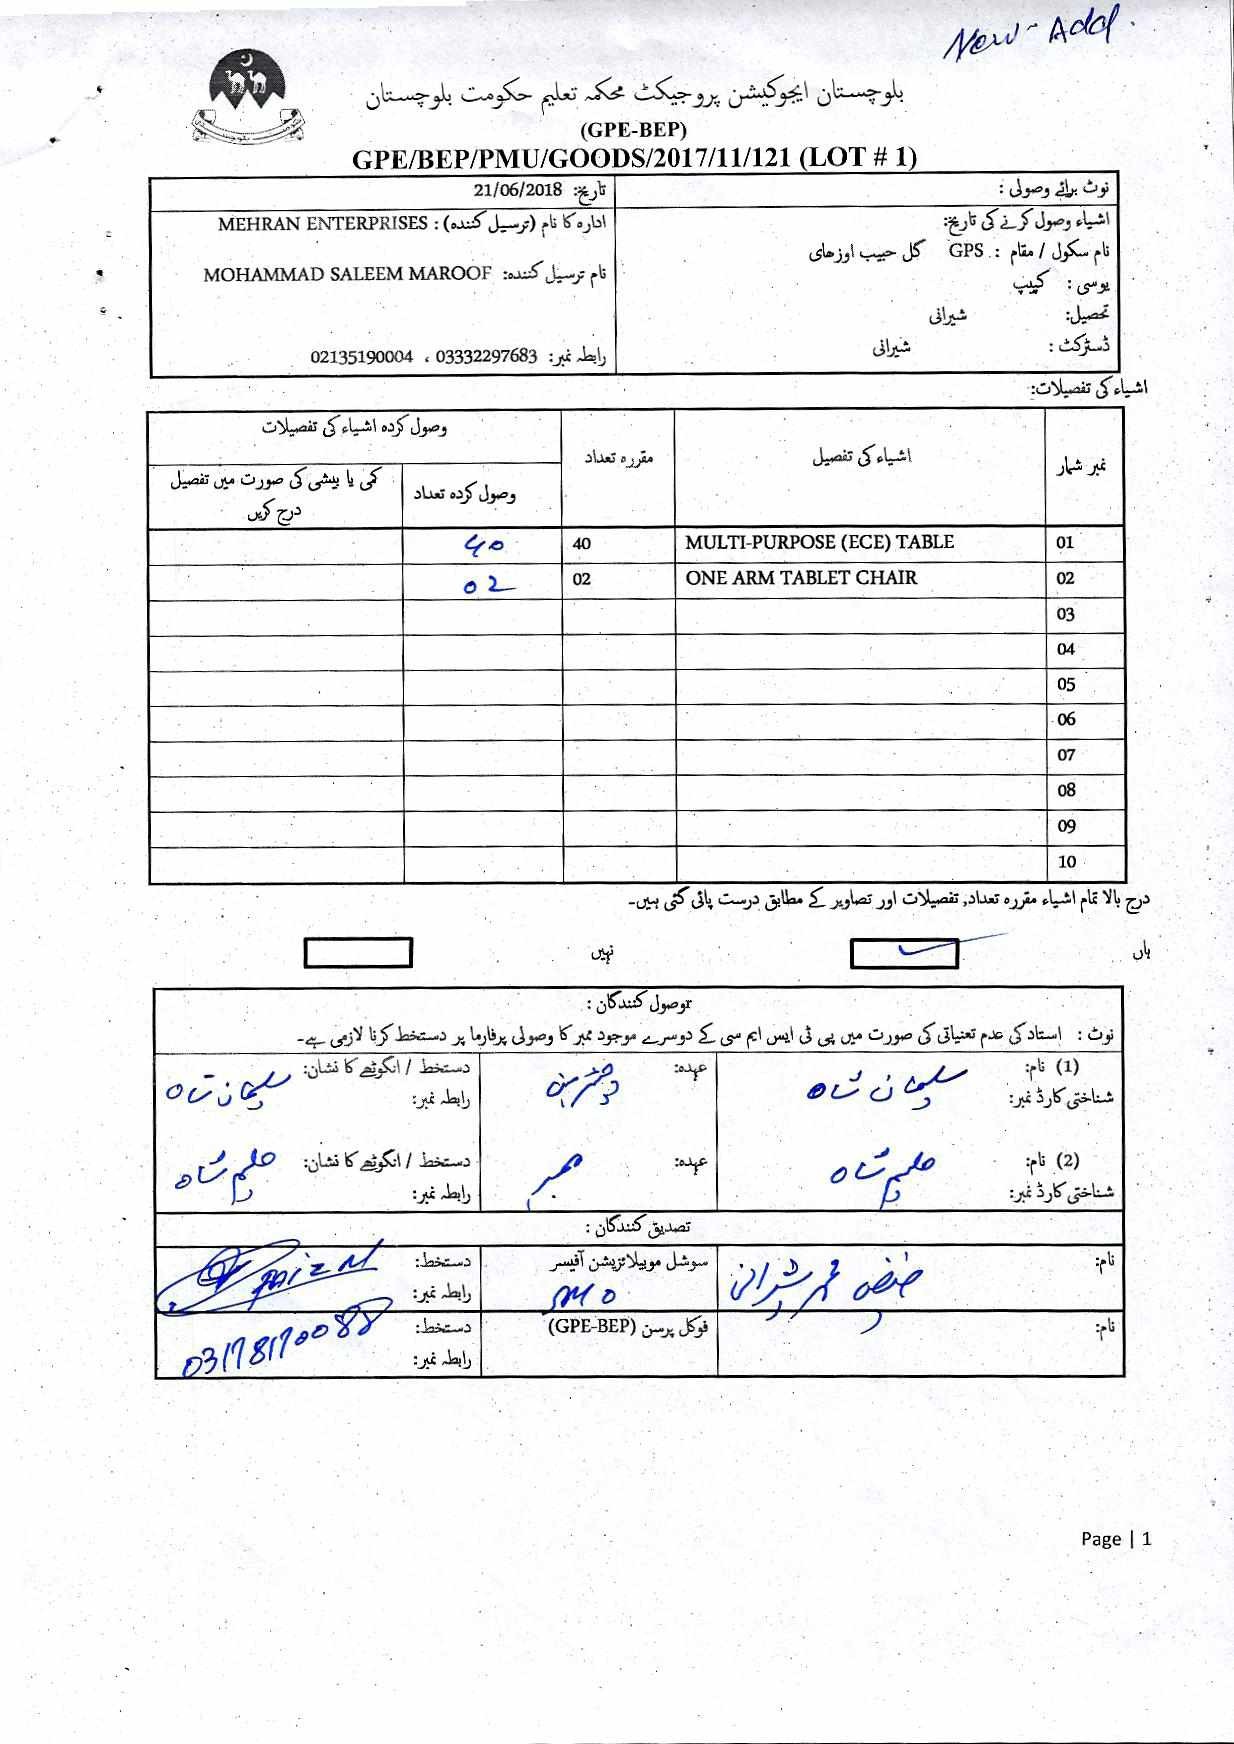 New- Add.
بلوچستان ایجوکیشن پروجیکٹ محکمہ تعلیم حکومت بلوچستان
(GPE-BEP)
GPE/BEP/PMU/GOODS/2017/11/121 (LOT # 1)
نوٹ برائے وصولی :
تاریخ: 21/06/2018
اشیاء وصول کرنے کی تاریخ:
ادارہ کا نام (ترسیل کنندہ) : MEHRAN ENTERPRISES
نام سکول / مقام : GPS گل حبیب اوزھای
نام ترسیل کنندہ: MOHAMMAD SALEEM MAROOF
یوسی : کپیپ
تحصیل: شیرانی
ڈسٹرکٹ : شیرانی
رابطہ نمبر: 03332297683 ، 02135190004
اشیاء کی تفصیلات:
نمبر شمار اشیاء کی تفصیل مقررہ تعداد وصول کردہ اشیاء کی تفصیلات
وصول کردہ تعداد کمی یا بیشی کی صورت میں تفصیل درج کریں
01 MULTI-PURPOSE (ECE) TABLE 40 40
02 ONE ARM TABLET CHAIR 02 02
03
04
05
06
07
08
09
10
درج بالا تمام اشیاء مقررہ تعداد, تفصیلات اور تصاویر کے مطابق درست پائی گئی ہیں۔
ہاں نہیں
وصول کنندگان :
نوٹ : استاد کی عدم تعنیاتی کی صورت میں پی ٹی ایس ایم سی کے دوسرے موجود ممبر کا وصولی پرفارما پر دستخط کرنا لازمی ہے۔
(1) نام: سلیمان شاہ عہدہ: دستخط / انگوٹھے کا نشان: سلیمان شاہ
شناختی کارڈ نمبر: رابطہ نمبر:
(2) نام: حلیم شاہ عہدہ: ممبر دستخط / انگوٹھے کا نشان: حلیم شاہ
شناختی کارڈ نمبر: رابطہ نمبر:
تصدیق کنندگان :
نام: محمد شیرانی سوشل موبیلائزیشن آفیسر دستخط: Faiz M
SMO رابطہ نمبر:
نام: فوکل پرسن (GPE-BEP) دستخط:
رابطہ نمبر: 03178170088
Page | 1